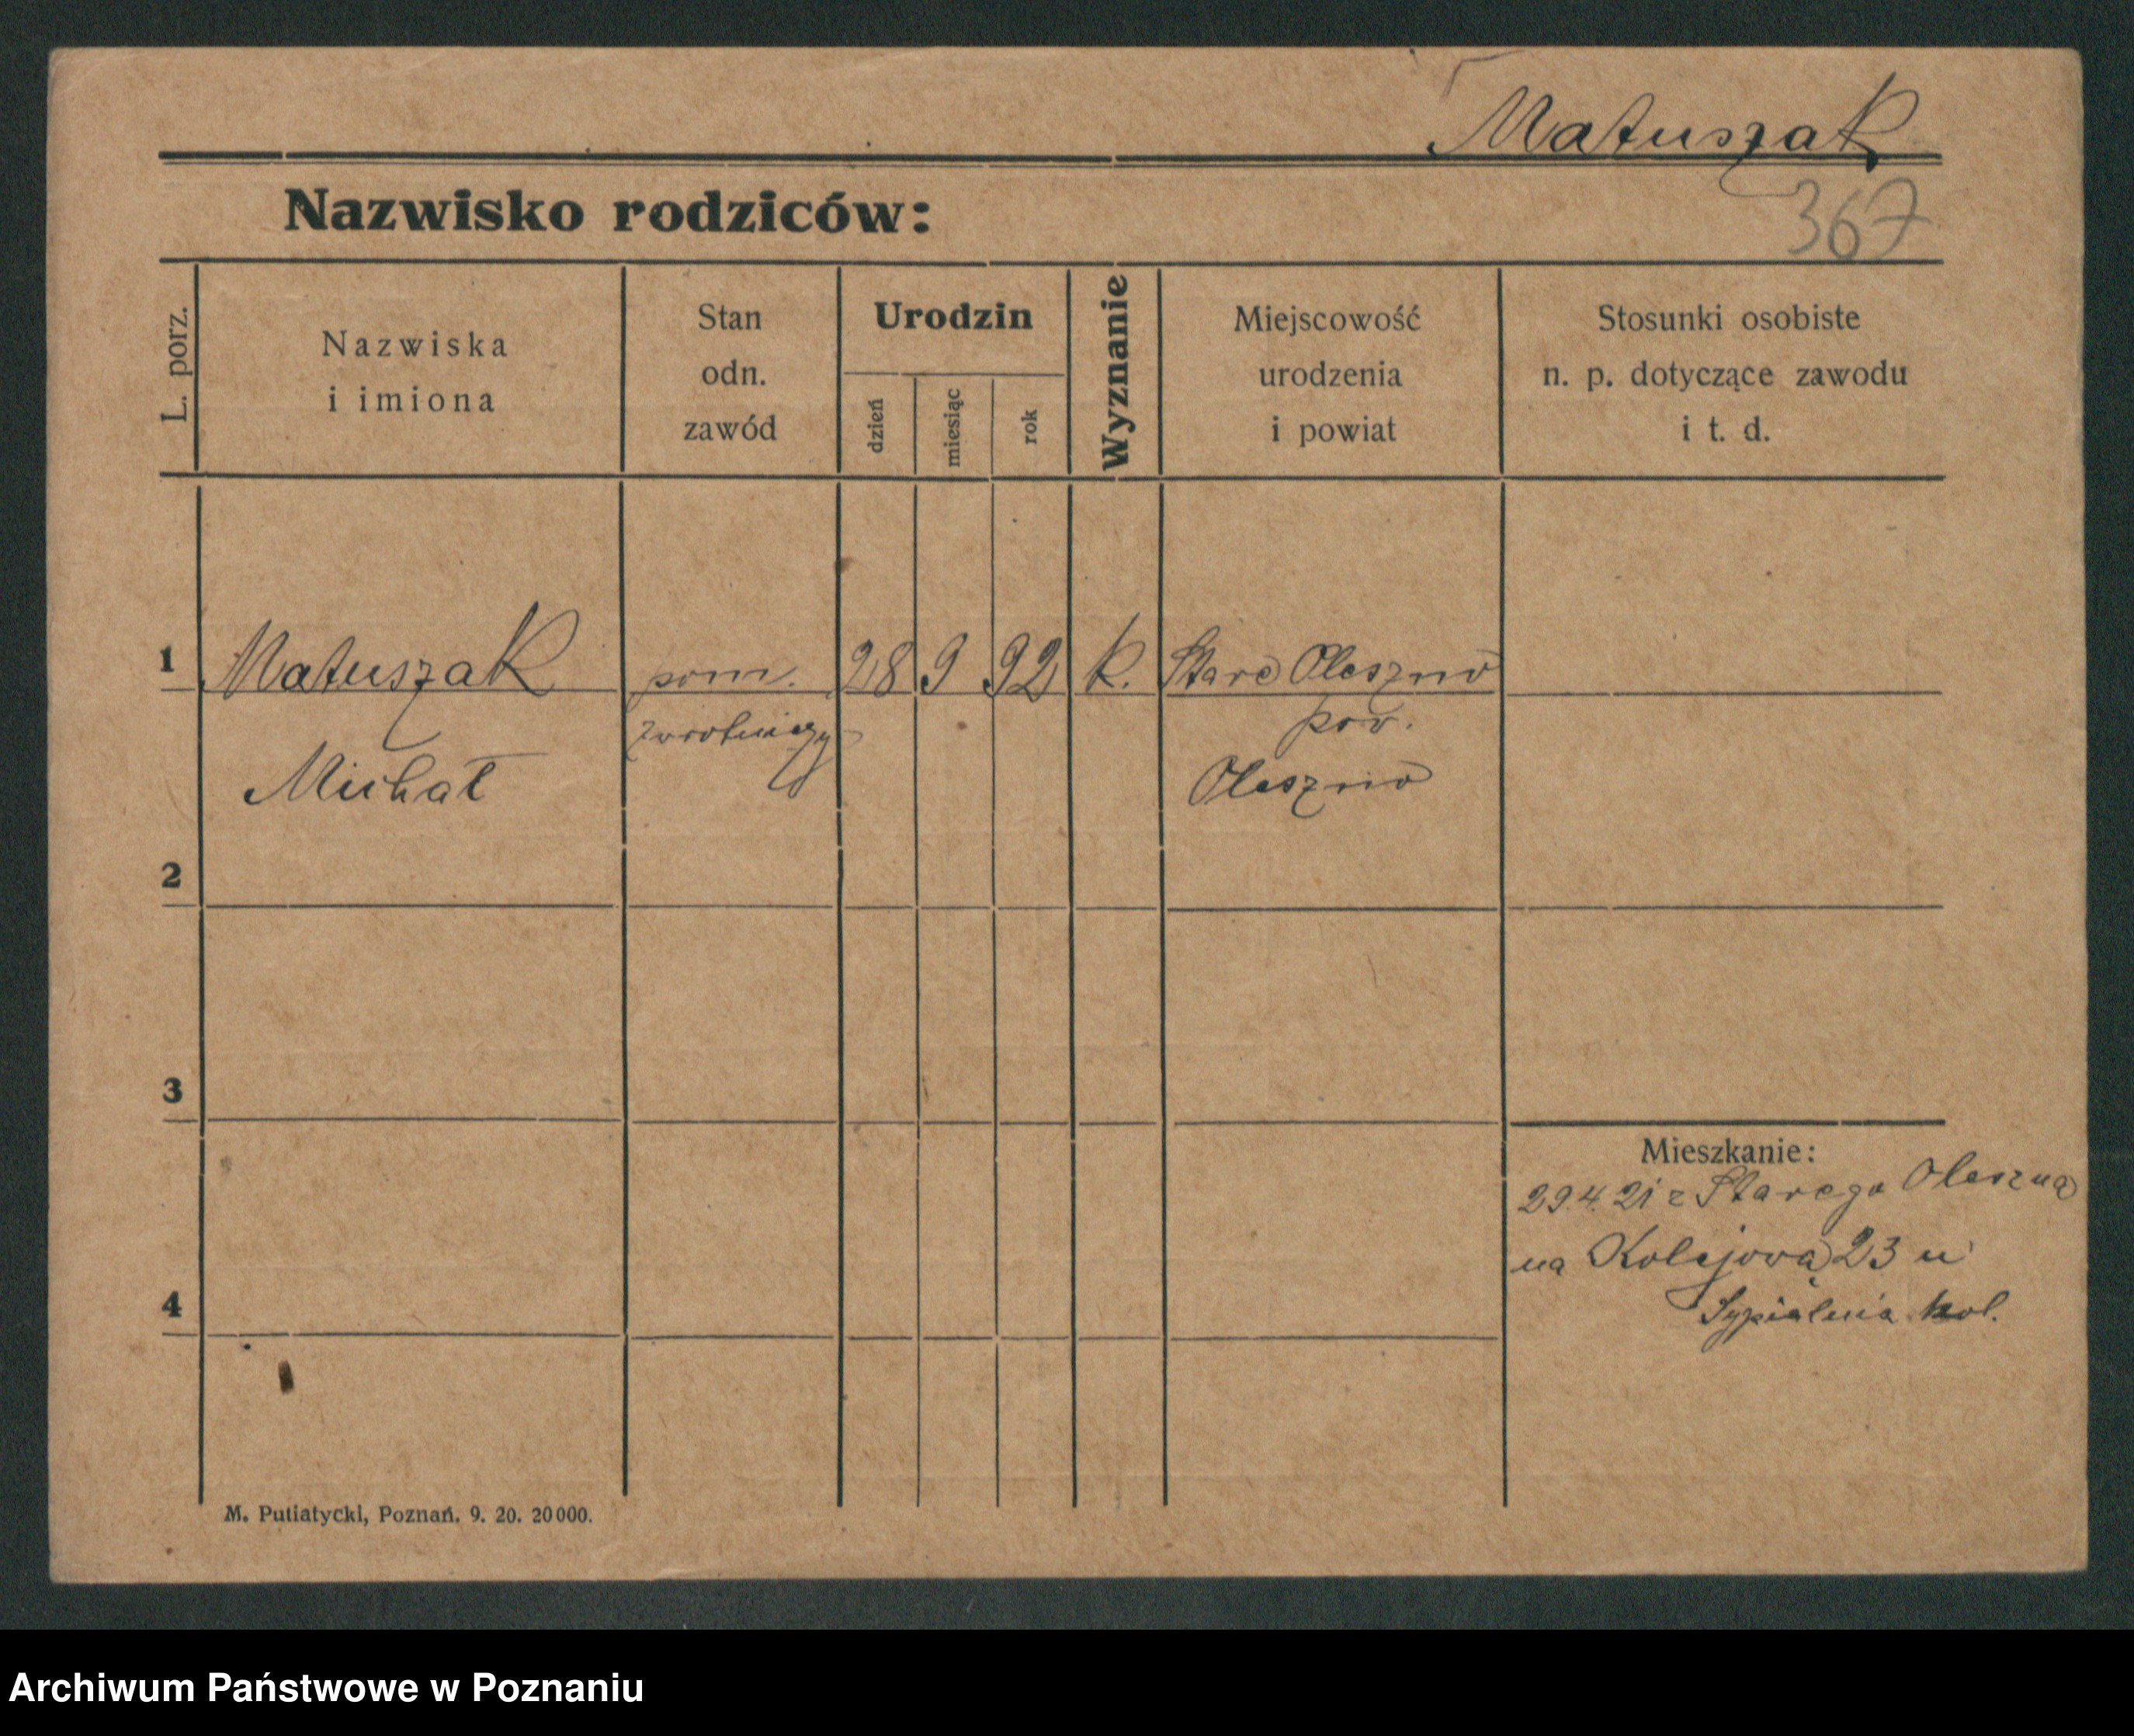 Matuszak
Nazwisko rodziców:
367
L. porz.
Nazwiska
i imiona
Stan
odn.
zawód
Urodzin
dzień
miesiąc
rok
Wyznanie
Miejscowość
urodzenia
i powiat
Stosunki osobiste
n. p. dotyczące zawodu
i t. d.
1 Matuszak pom. 28 9 92 k. Stare Oleszno
zwrotniczy pow.
Michał Oleszno
2
3
Mieszkanie:
29.4.21 z Starego Oleszna
na Kolejową 23 u
4 Sypialnia kol.
M. Putiatycki, Poznań. 9. 20. 20 000.
Archiwum Państwowe w Poznaniu